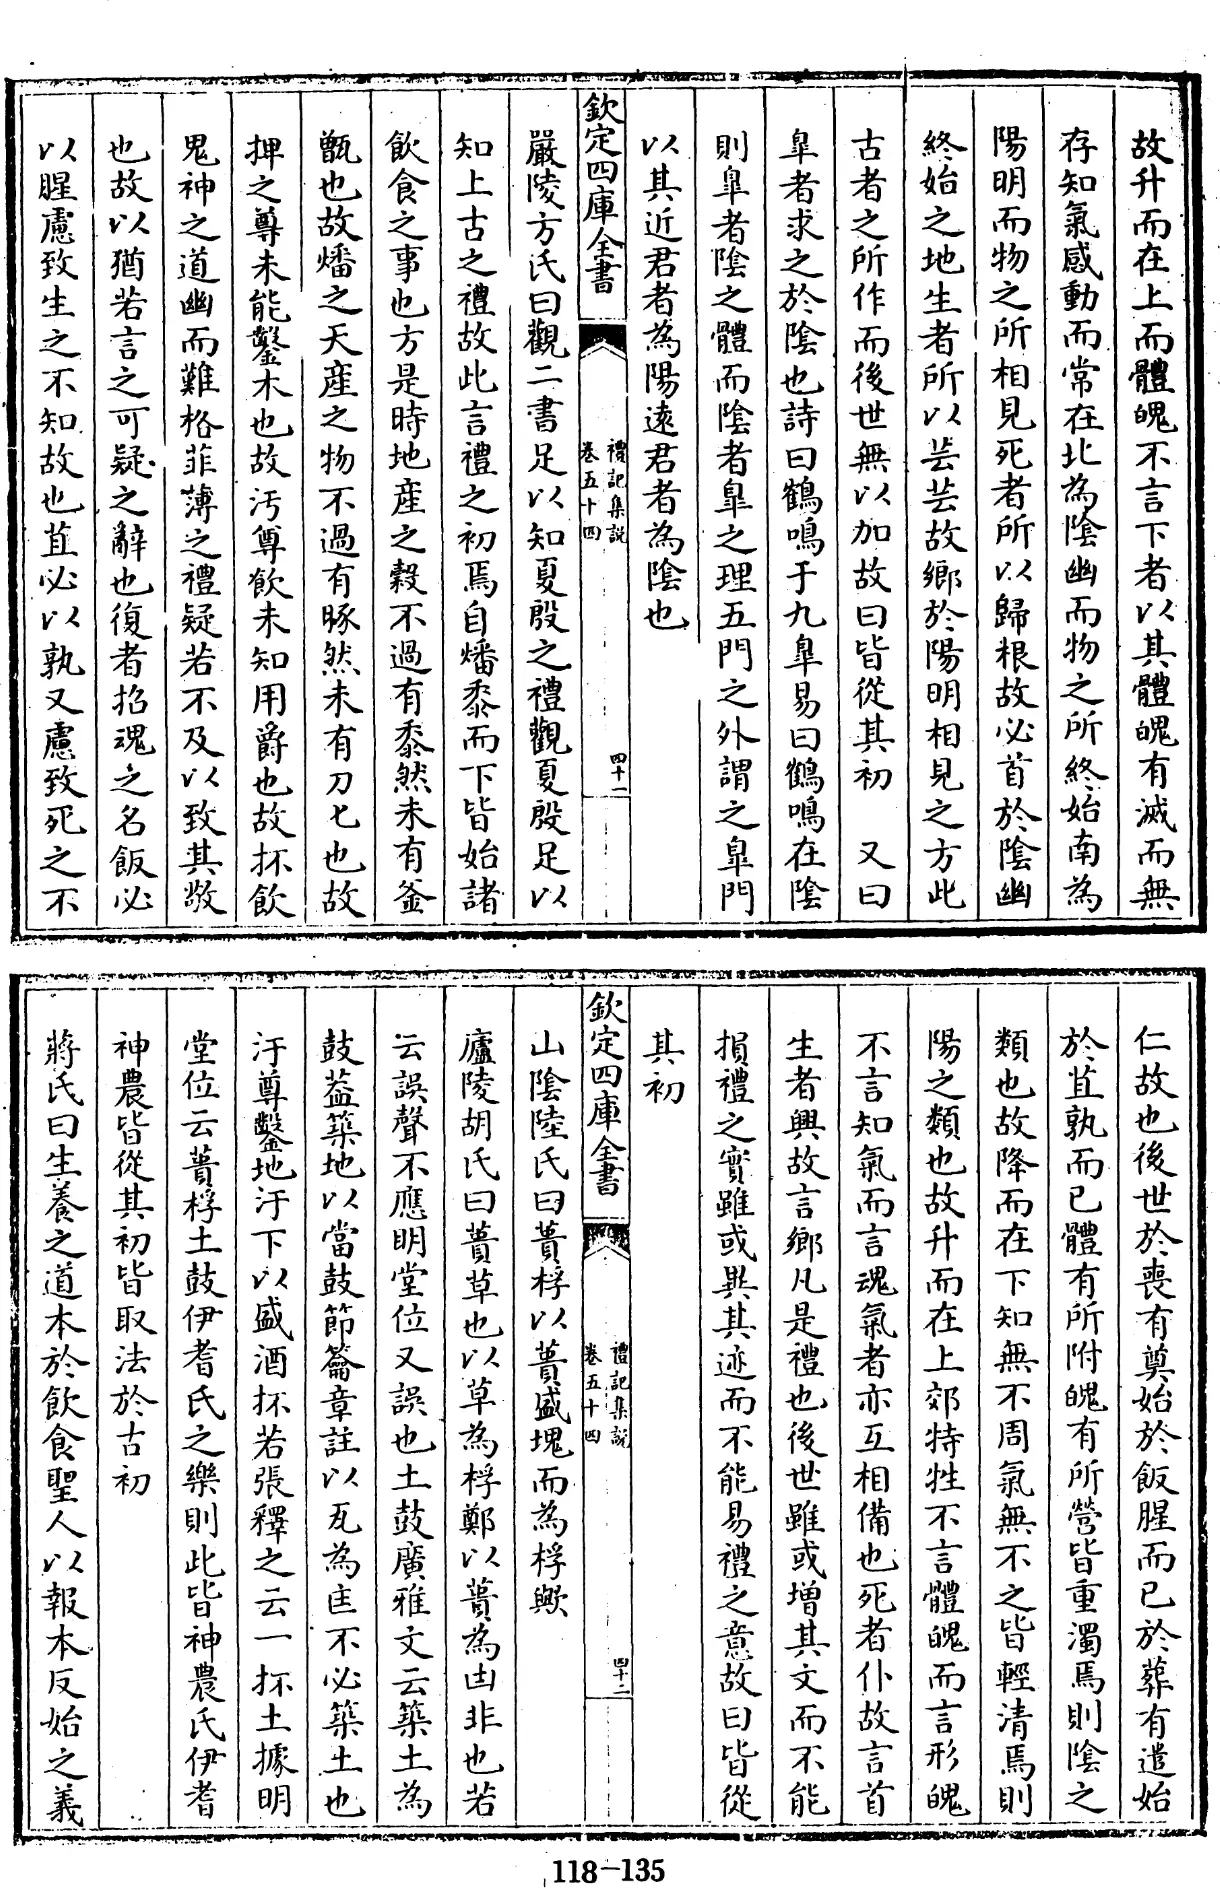 故升而在上而體魄不言下者以其體魄有滅而無
存知氣感動而常在北為陰幽而物之所終始南為
陽明而物之所相見死者所以歸根故必首於陰幽
終始之地生者所以芸芸故鄉於陽明相見之方此
古者之所作而後世無以加故曰皆從其初　又曰
臯者求之於陰也詩曰鶴鳴于九臯易曰鶴鳴在陰
則臯者陰之體而陰者臯之理五門之外謂之臯門
以其近君者為陽遠君者為陰也
欽定四庫全書
禮記集說
卷五十四
四十一
嚴陵方氏曰觀二書足以知夏殷之禮觀夏殷足以
知上古之禮故此言禮之初焉自燔黍而下皆始諸
飲食之事也方是時地產之穀不過有黍然未有釜
甑也故燔之天產之物不過有豚然未有刀匕也故
捭之尊未能鑿木也故汚尊飲未知用爵也故抔飲
鬼神之道幽而難格菲薄之禮疑若不及以致其敬
也故以猶若言之可疑之辭也復者招魂之名飯必
以腥慮致生之不知故也苴必以孰又慮致死之不
仁故也後世於喪有奠始於飯腥而已於葬有遣始
於苴孰而已體有所附魄有所營皆重濁焉則陰之
類也故降而在下知無不周氣無不之皆輕清焉則
陽之類也故升而在上郊特牲不言體魄而言形魄
不言知氣而言魂氣者亦互相備也死者仆故言首
生者興故言鄉凡是禮也後世雖或增其文而不能
損禮之實雖或異其迹而不能易禮之意故曰皆從
其初
欽定四庫全書
禮記集說
卷五十四
四十二
山陰陸氏曰蕢桴以蕢盛塊而為桴歟
廬陵胡氏曰蕢草也以草為桴鄭以蕢為凷非也若
云誤聲不應明堂位又誤也土鼓廣雅文云築土為
鼓葢築地以當鼓節籥章註以瓦為匡不必築土也
汙尊鑿地汙下以盛酒抔若張釋之云一抔土據明
堂位云蕢桴土鼓伊耆氏之樂則此皆神農氏伊耆
神農皆從其初皆取法於古初
蔣氏曰生養之道本於飲食聖人以報本反始之義
118-135